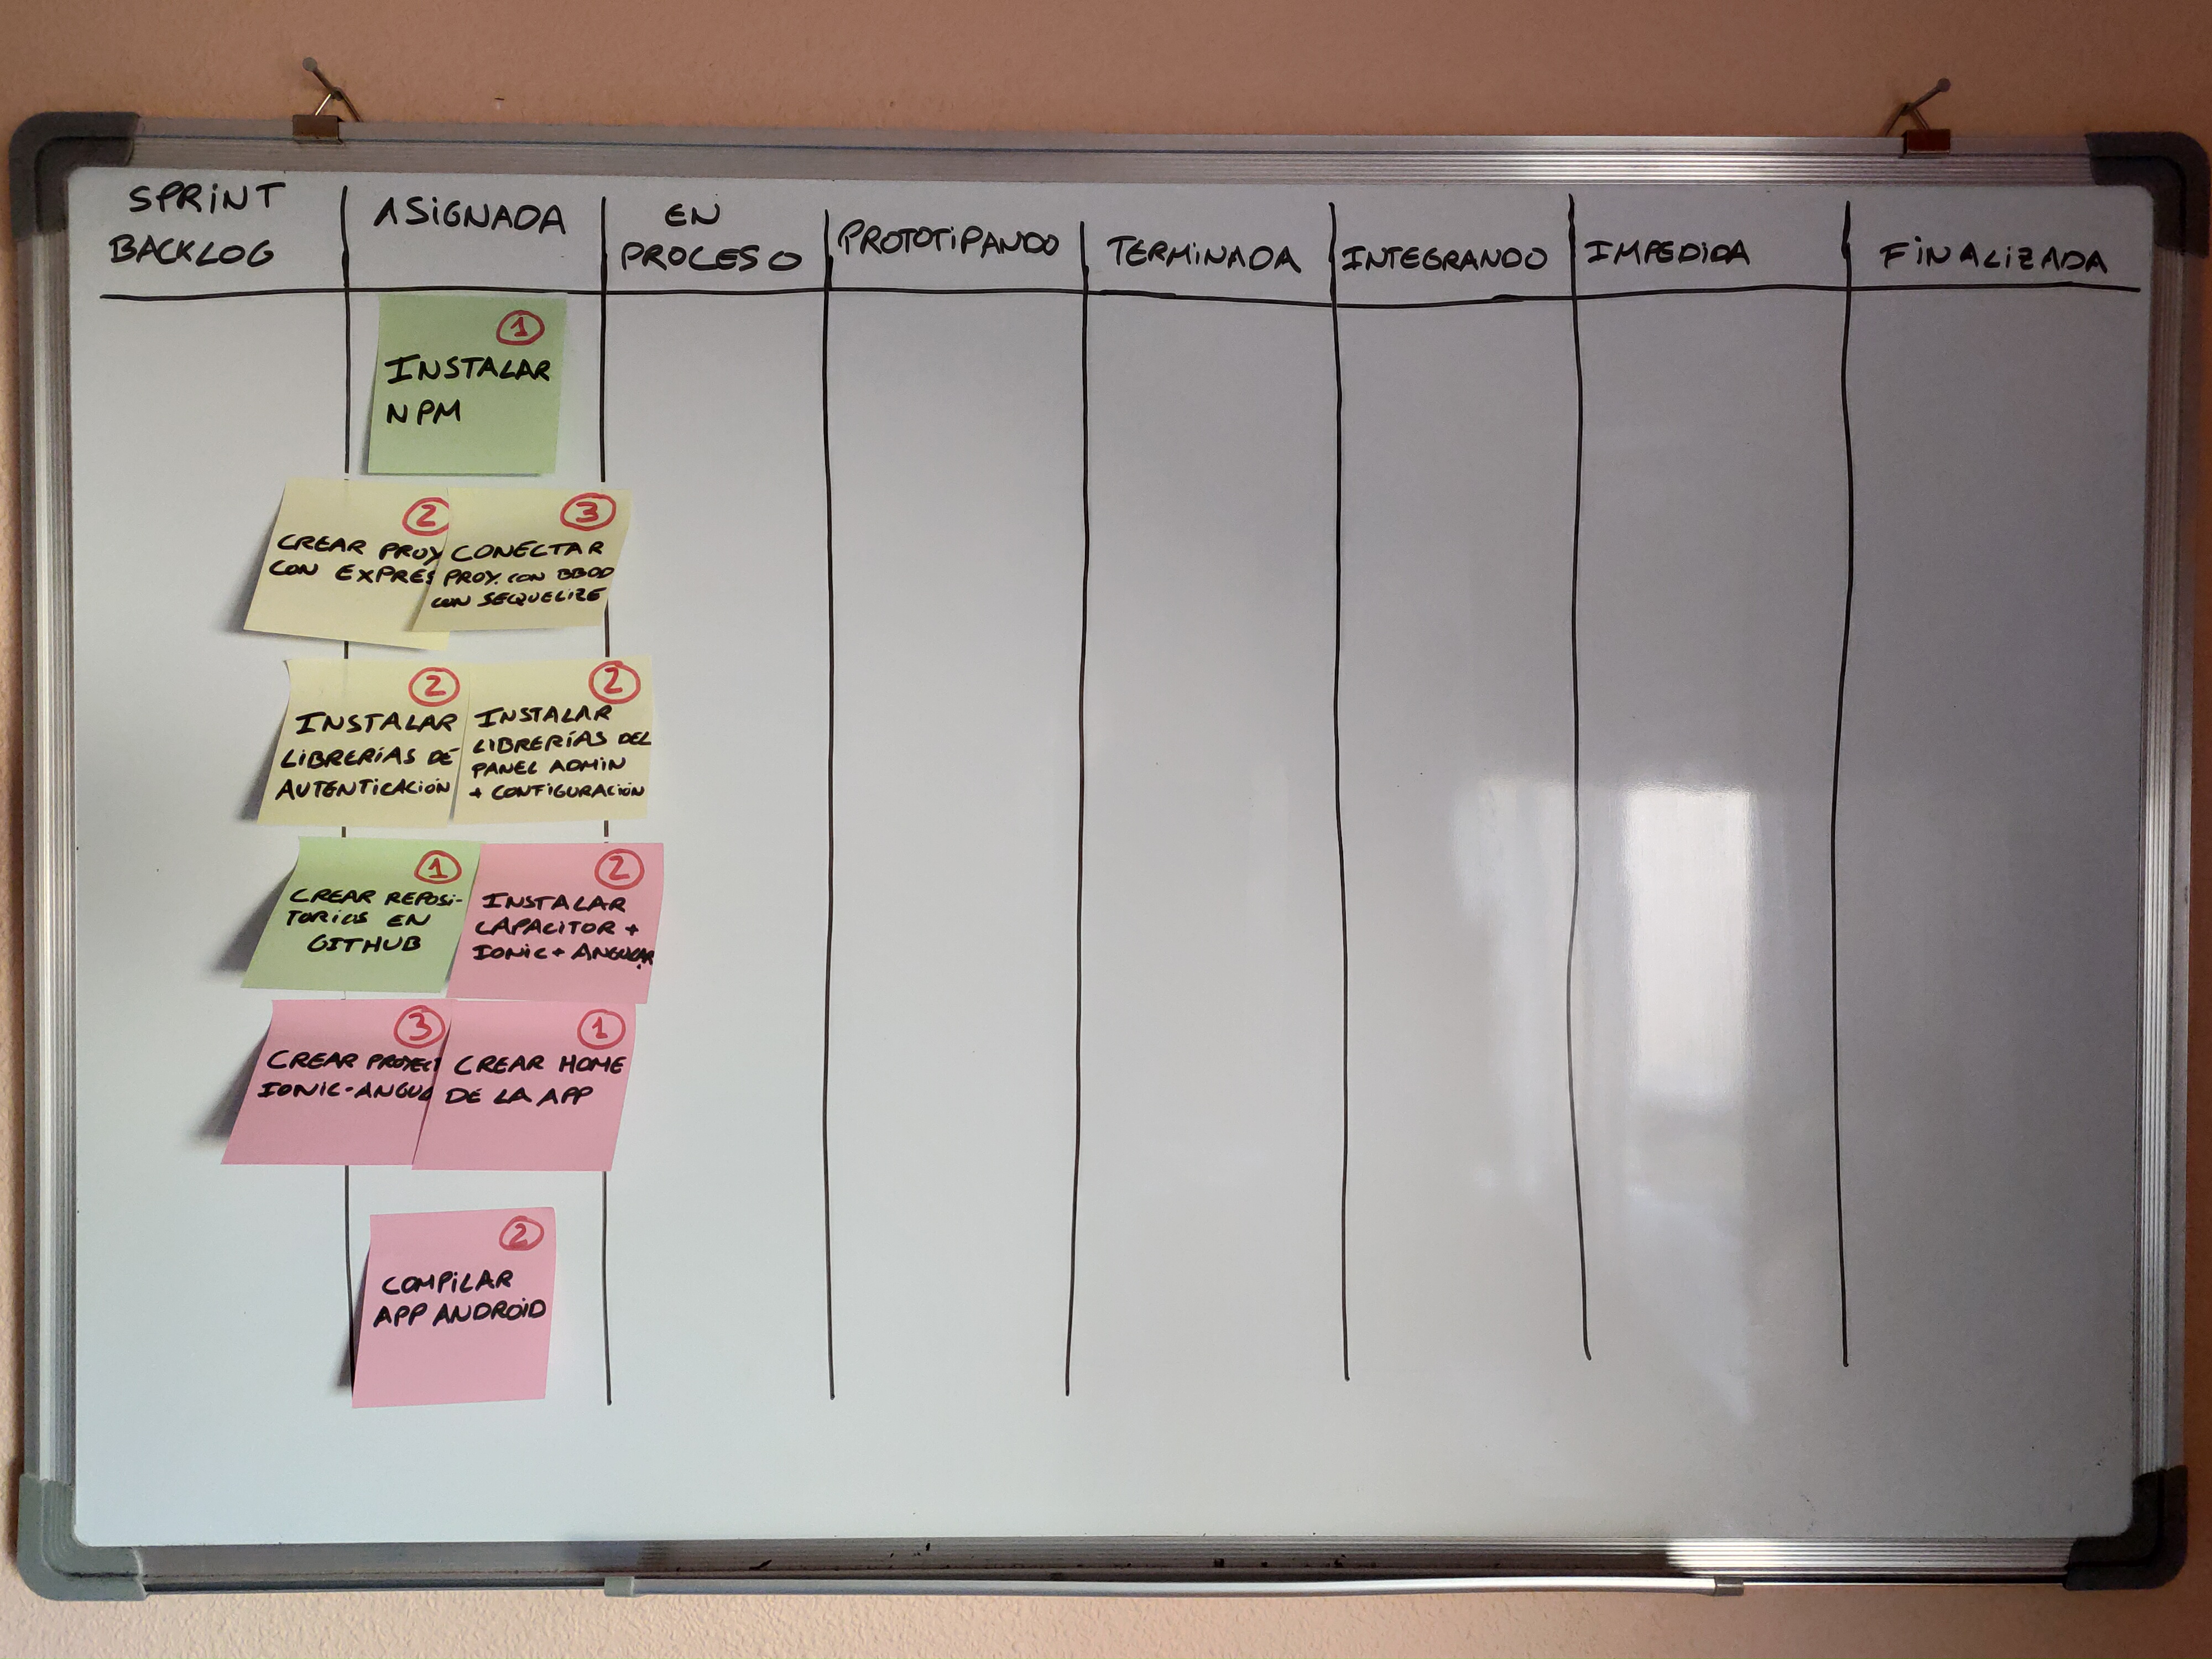 SPRINT
BACKLOG
ASIGNADA
EN
PROCESO
PROTOTIPANDO
TERMINADA
INTEGRANDO
IMPEDIDA
FINALIZADA
1
INSTALAR
NPM
2
CREAR PROY
CON EXPRES
3
CONECTAR
PROY. CON BBDD
CON SEQUELIZE
2
INSTALAR
LIBRERÍAS DE
AUTENTICACIÓN
2
INSTALAR
LIBRERÍAS DEL
PANEL ADMIN
+ CONFIGURACIÓN
1
CREAR REPOSI-
TORIOS EN
GITHUB
2
INSTALAR
CAPACITOR +
IONIC + ANGULAR
3
CREAR PROYECT
IONIC-ANGUL
1
CREAR HOME
DE LA APP
2
COMPILAR
APP ANDROID